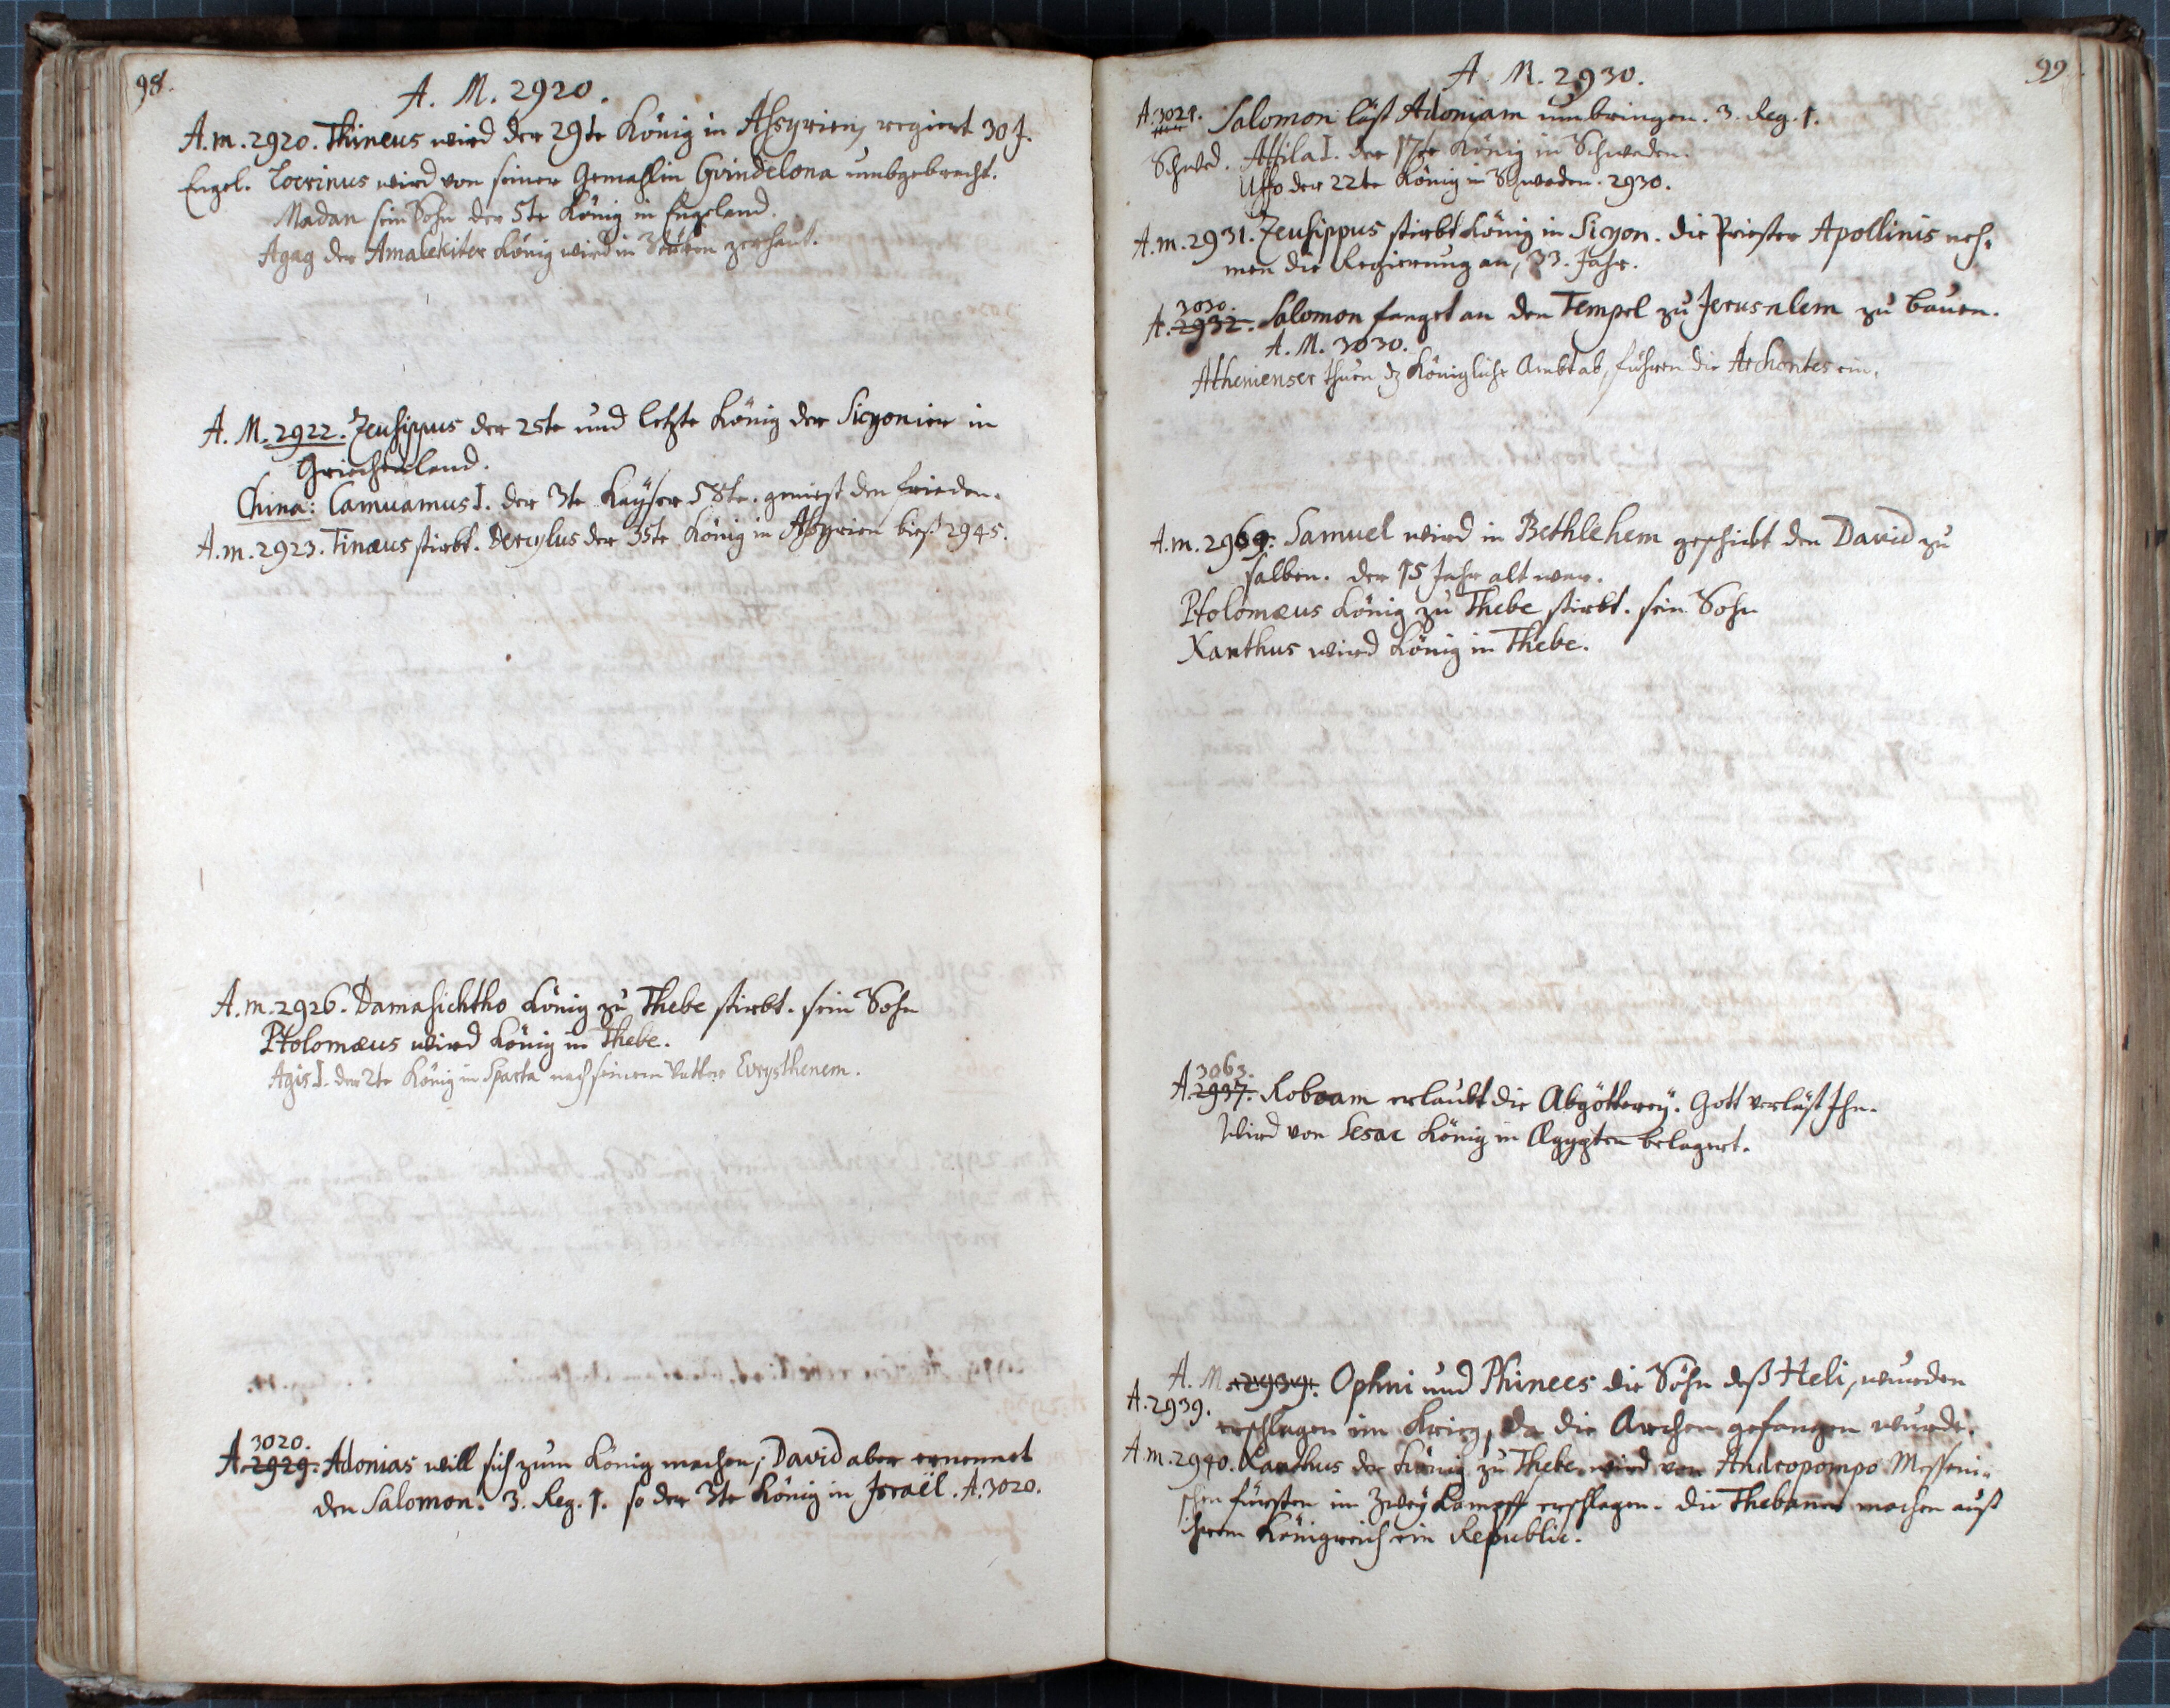 98.
A. M. 2920.
A. m. 2920. Thineus wird der 29te König in Assyrien, regiert 30 J.
Engel. Locrinus wird von seiner Gemahlin Gvindelona umbgebracht.
Madan sein Sohn der 5te König in Engeland.
Agag der Amalekiter König wird in Stüken zerhaut.
A. M. 2922. Zeusippus der 25te und letzte König der Sicyonier in
Griechenland.
China: Camuamus I. der 3te Kayser 58te. geniest den frieden.
A. m. 2923. Tinæus stirbt. Dercylus der 35te König in Assyrien bieß 2945.
A. m. 2926. Damasichtho König zu Thebe stirbt. sein Sohn
Ptolomæus wird König in Thebe.
Agis I. der 2te König in Sparta nach seinem Vatter Evrysthenem.
3020.
A. 2929. Adonias will sich zum König machen, David aber ernennet
den Salomon. 3. Reg. 1. so der 3te König in Israël. A. 3020.
99
A. M. 2930.
A. 3021. Salomon läst Adoniam umbringen. 3. Reg. 1.
Schwed. Attila I. der 17te König in Schweden.
Uffo der 22te König in Schweden. 2930.
A. m. 2931. Zeusippus stirbt König in Sicyon. die Priester Apollinis neh-
men die Regierung an, 33. Jahr.
3030.
A. 2932. Salomon fanget an den Tempel zu Jerusalem zu bauen.
A. M. 3030.
Athenienser thuen dz Königliche Ambt ab, führen die Archontes ein.
A. m. 2969. Samuel wird in Bethlehem geschickt den David zu
salben. der 15 Jahr alt war.
Ptolomæus König zu Thebe stirbt. sein Sohn
Xanthus wird König in Thebe.
3063.
A. 2937. Roboam erlaubt die Abgötterey. Gott verläst Ihn.
Wird von Sesac König in Ægypten belagert.
A. M. 2939. Ophni und Phinees die Söhn deß Heli, wurden
A. 2939.
erschlagen im Krieg, da die Archen gefangen wurde.
A. m. 2940. Xanthus der König zu Thebe wird von Andropompo Messeni-
schen fürsten im Zwey Kampff erschlagen. die Thebaner machen auß
ihrem Königreich ein Republic.